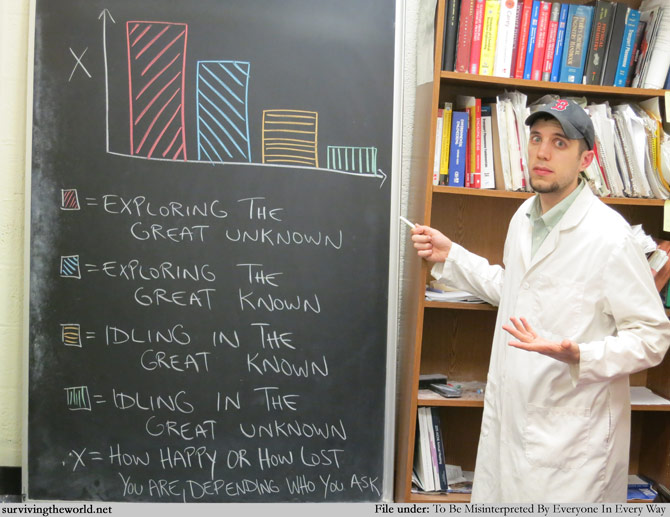 X
= EXPLORING THE
GREAT UNKNOWN
= EXPLORING THE
GREAT KNOWN
= IDLING IN THE
GREAT KNOWN
= IDLING IN THE
GREAT UNKNOWN
X = HOW HAPPY OR HOW LOST
YOU ARE, DEPENDING WHO YOU ASK
survivingtheworld.net
File under: To Be Misinterpreted By Everyone In Every Way